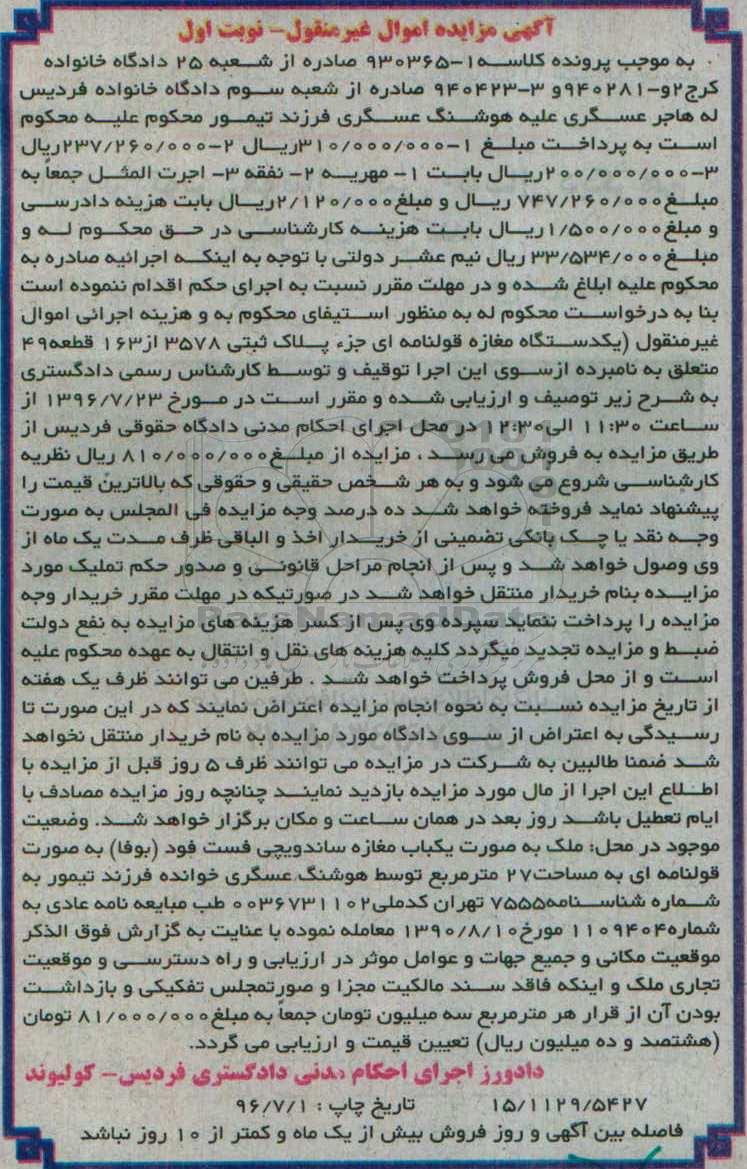 آگهی مزایده اموال غیرمنقول- نوبت اول
به موجب پرونده کلاسه۱-۹۳۰۳۶۵ صادره از شعبه ۲۵ دادگاه خانواده
کرج۲و-۹۴۰۲۸۱و ۳-۹۴۰۴۲۳ صادره از شعبه سوم دادگاه خانواده فردیس
له هاجر عسگری علیه هوشنگ عسگری فرزند تیمور محکوم علیه محکوم
است به پرداخت مبلغ ۱-۳۱۰/۰۰۰/۰۰۰ریال ۲-۲۳۷/۲۶۰/۰۰۰ریال
۳-۲۰۰/۰۰۰/۰۰۰ریال بابت ۱- مهریه ۲- نفقه ۳- اجرت المثل جمعاً به
مبلغ۷۴۷/۲۶۰/۰۰۰ ریال و مبلغ۲/۱۲۰/۰۰۰ریال بابت هزینه دادرسی
و مبلغ۱/۵۰۰/۰۰۰ریال بابت هزینه کارشناسی در حق محکوم له و
مبلغ۳۳/۵۳۴/۰۰۰ ریال نیم عشر دولتی با توجه به اینکه اجرائیه صادره به
محکوم علیه ابلاغ شده و در مهلت مقرر نسبت به اجرای حکم اقدام ننموده است
بنا به درخواست محکوم له به منظور استیفای محکوم به و هزینه اجرائی اموال
غیرمنقول (یکدستگاه مغازه قولنامه ای جزء پلاک ثبتی ۳۵۷۸ از۱۶۳ قطعه۴۹
متعلق به نامبرده ازسوی این اجرا توقیف و توسط کارشناس رسمی دادگستری
به شرح زیر توصیف و ارزیابی شده و مقرر است در مورخ ۱۳۹۶/۷/۲۳ از
ساعت ۱۱:۳۰ الی۱۲:۳۰ در محل اجرای احکام مدنی دادگاه حقوقی فردیس از
طریق مزایده به فروش می رسد ، مزایده از مبلغ۸۱۰/۰۰۰/۰۰۰ ریال نظریه
کارشناسی شروع می شود و به هر شخص حقیقی و حقوقی که بالاترین قیمت را
پیشنهاد نماید فروخته خواهد شد ده درصد وجه مزایده فی المجلس به صورت
وجه نقد یا چک بانکی تضمینی از خریدار اخذ و الباقی ظرف مدت یک ماه از
وی وصول خواهد شد و پس از انجام مراحل قانونی و صدور حکم تملیک مورد
مزایده بنام خریدار منتقل خواهد شد در صورتیکه در مهلت مقرر خریدار وجه
مزایده را پرداخت ننماید سپرده وی پس از کسر هزینه های مزایده به نفع دولت
ضبط و مزایده تجدید میگردد کلیه هزینه های نقل و انتقال به عهده محکوم علیه
است و از محل فروش پرداخت خواهد شد . طرفین می توانند ظرف یک هفته
از تاریخ مزایده نسبت به نحوه انجام مزایده اعتراض نمایند که در این صورت تا
رسیدگی به اعتراض از سوی دادگاه مورد مزایده به نام خریدار منتقل نخواهد
شد ضمنا طالبین به شرکت در مزایده می توانند ظرف ۵ روز قبل از مزایده با
اطلاع این اجرا از مال مورد مزایده بازدید نمایند چنانچه روز مزایده مصادف با
ایام تعطیل باشد روز بعد در همان ساعت و مکان برگزار خواهد شد. وضعیت
موجود در محل: ملک به صورت یکباب مغازه ساندویچی فست فود (بوفا) به صورت
قولنامه ای به مساحت۲۷ مترمربع توسط هوشنگ عسگری خوانده فرزند تیمور به
شماره شناسنامه۷۵۵۵ تهران کدملی۰۰۳۶۷۳۱۱۰۲ طب مبایعه نامه عادی به
شماره۱۱۰۹۴۰۴ مورخ۱۳۹۰/۸/۱۰ معامله نموده با عنایت به گزارش فوق الذکر
موقعیت مکانی و جمیع جهات و عوامل موثر در ارزیابی و راه دسترسی و موقعیت
تجاری ملک و اینکه فاقد سند مالکیت مجزا و صورتمجلس تفکیکی و بازداشت
بودن آن از قرار هر مترمربع سه میلیون تومان جمعاً به مبلغ۸۱/۰۰۰/۰۰۰ تومان
(هشتصد و ده میلیون ریال) تعیین قیمت و ارزیابی می گردد.
دادورز اجرای احکام مدنی دادگستری فردیس- کولیوند
۱۵/۱۱۲۹/۵۴۲۷ تاریخ چاپ : ۹۶/۷/۱
فاصله بین آگهی و روز فروش بیش از یک ماه و کمتر از ۱۰ روز نباشد
ParsNamadData